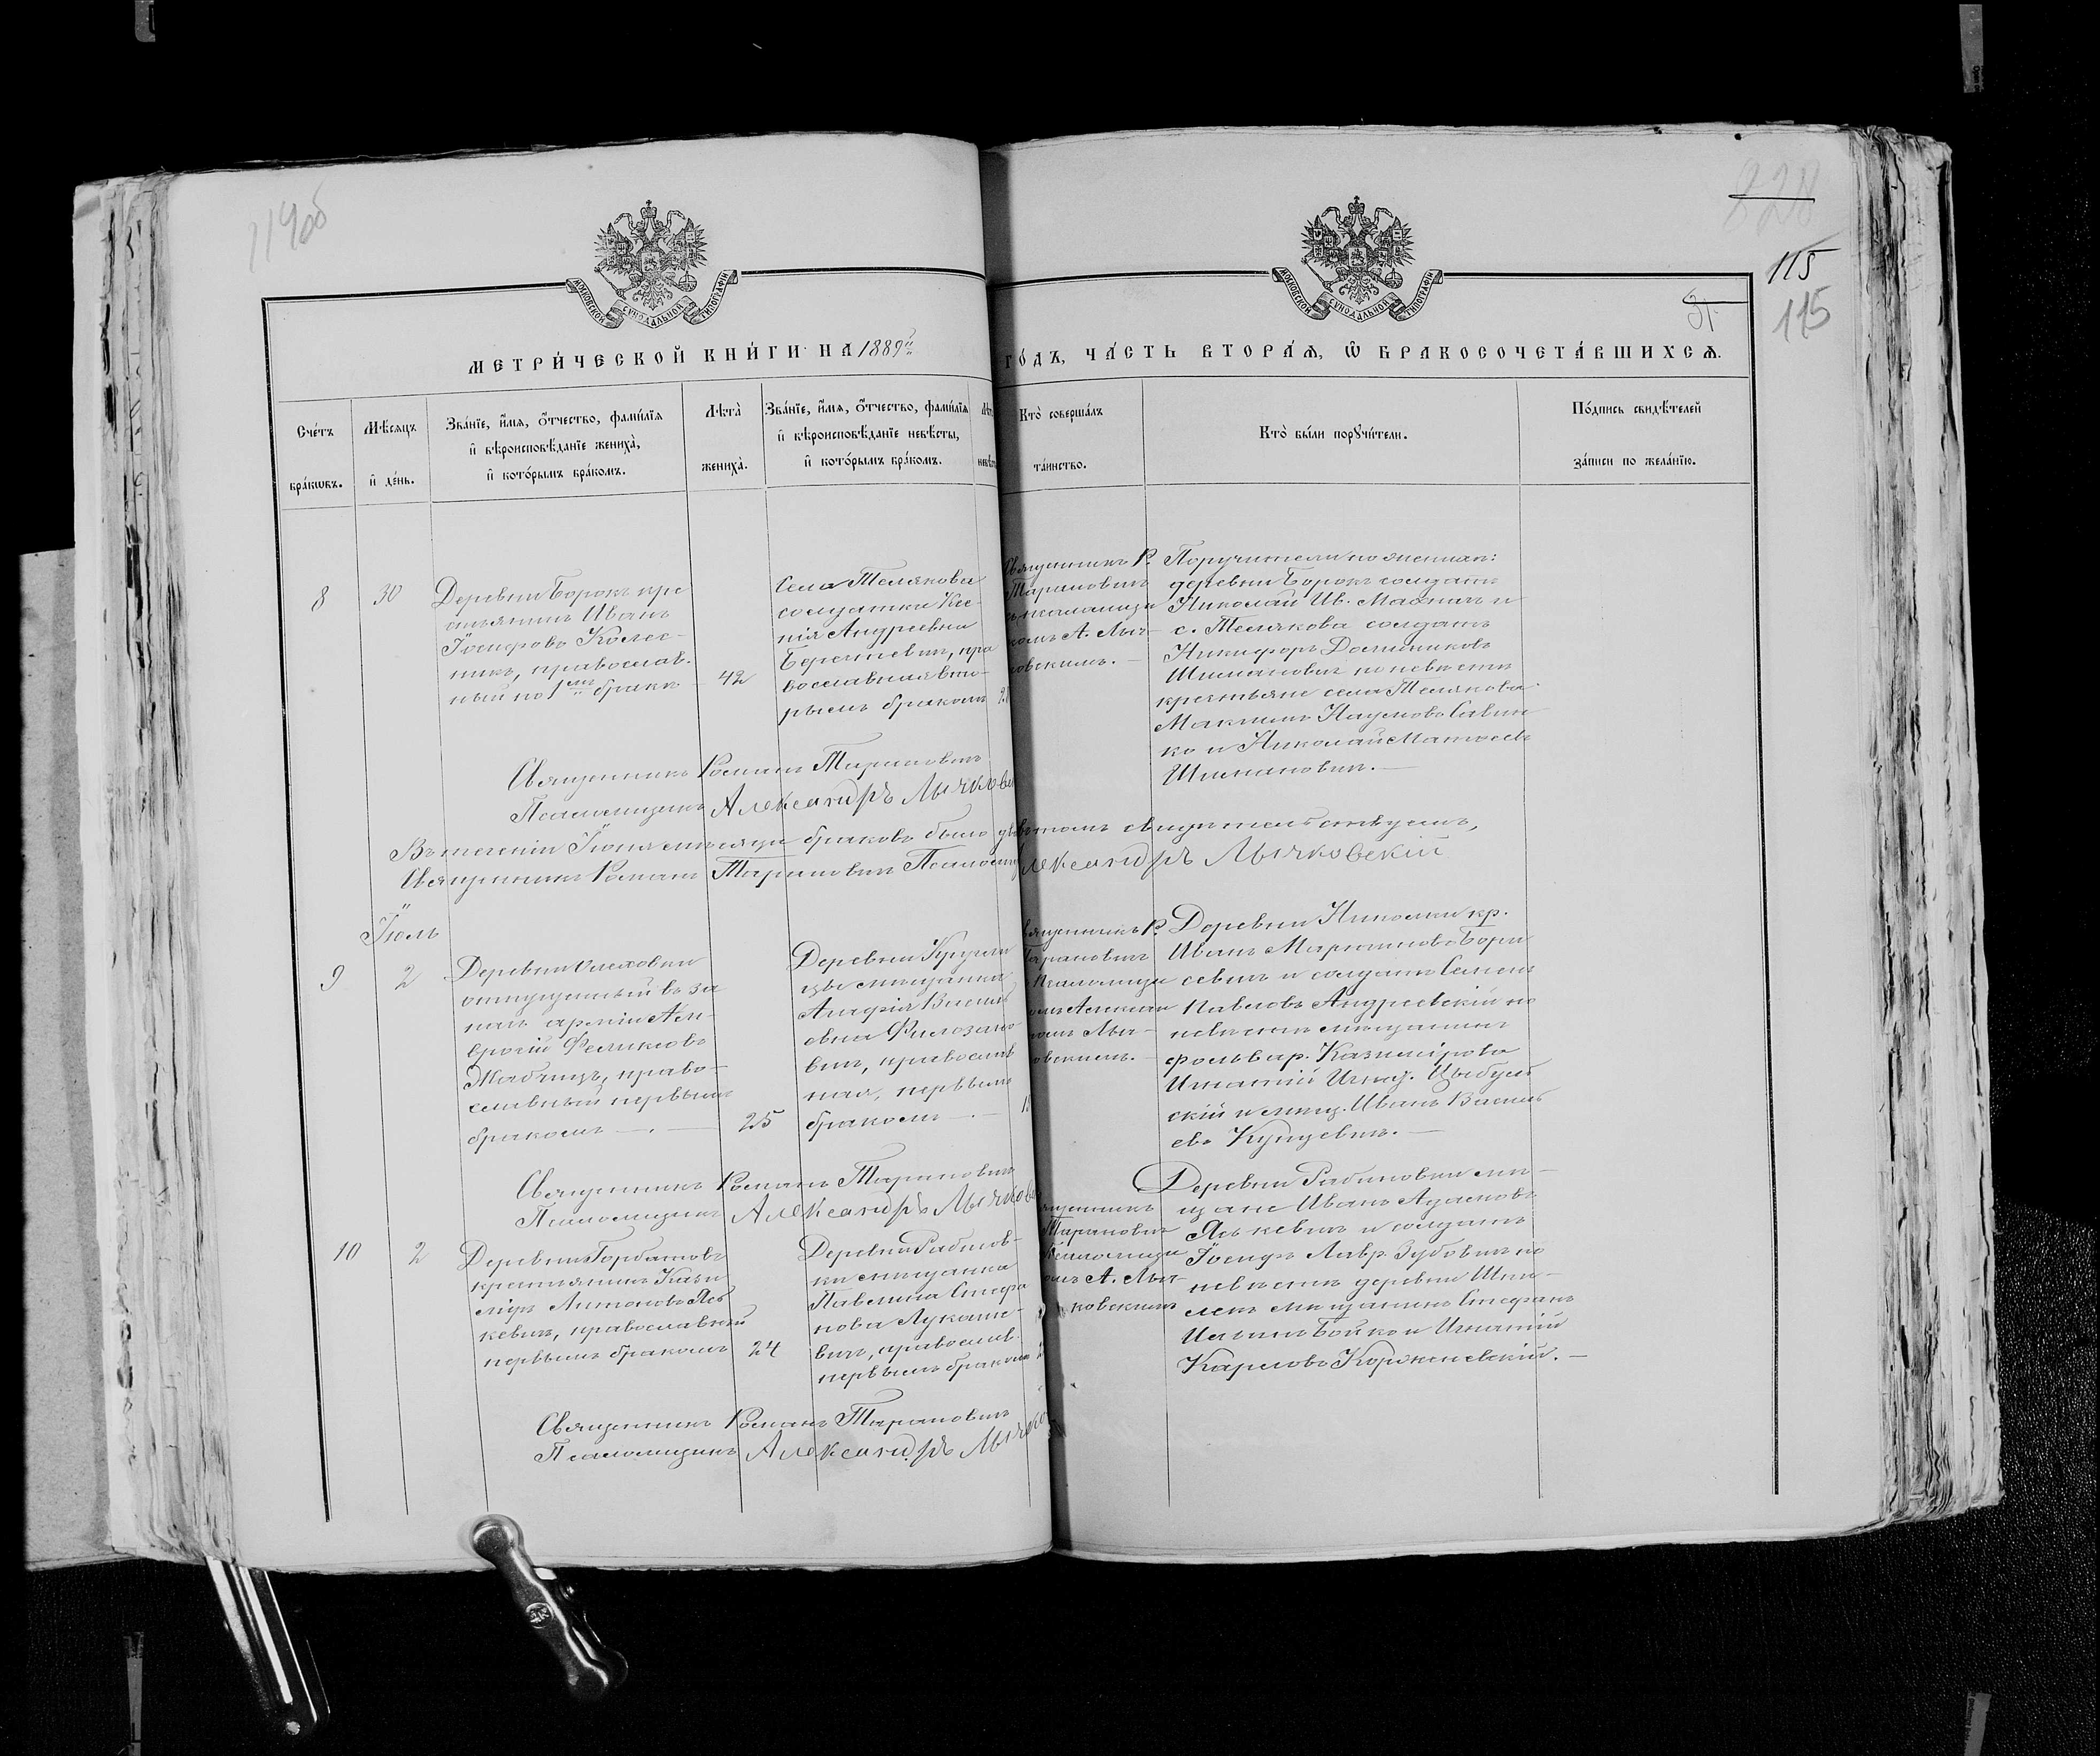 114об
228
115
31
115
МОСКОВСКОЙ СѴНОДАЛЬНОЙ ТИПОГРАФІИ
МОСКОВСКОЙ СѴНОДАЛЬНОЙ ТИПОГРАФІИ
МЕТРИ́ЧЕСКОЙ КНИ́ГИ НА 1889й
ГО́ДЪ, ЧА́СТЬ ВТОРА́Ѧ, Ѿ БРАКОСОЧЕТА́ВШИХСѦ.
Сче́тъ бра́кѡвъ.
Мѣ́сѧцъ и҆ де́нь.
Зва́нїе, и҆́мѧ, ѻ҆́тчество, фами́лїѧ и҆ вѣроисповѣ́данїе жениха̀, и҆ кото́рымъ бра́комъ.
Лѣта̀ жениха̀.
Зва́нїе, и҆́мѧ, ѻ҆́тчество, фами́лїѧ и҆ вѣроисповѣ́данїе невѣ́сты, и҆ кото́рымъ бра́комъ.
Кто̀ соверша́лъ та́инство.
Кто̀ бы́ли порꙋчи́тели.
По́дпись свидѣ́телей за́писи по жела́нїю.
8
30
Деревни Борокъ кре
стьянинъ Иванъ
Іосифовъ Колес-
никъ, православ-
ный по 1мъ бракѣ
42
Села Телякова
солдатка Ксе-
нія Андреевна
православная вто-
рымъ бракомъ
Священникъ Р.
Тарановичъ
комъ А. Лыч-
ковскимъ. —
Поручители по женихѣ:
деревни Борокъ солдатъ
Николай Ив. и
с. Телякова солдатъ
Никифоръ
Шимановичъ по невѣстѣ
крестьяне села Телякова
Максимъ Наумовъ Савич
ко и Николай Матѳеевъ
Шимановичъ. —
Священникъ Романъ Тарановичъ
Псаломщикъ Александръ Лычковск
Въ теченіи Іюня мѣсяца браковъ было два въ томъ свидѣтельствуемъ,
Священникъ Романъ Тарановичъ Псаломщ Александръ Лычковскій
Іюль
9
2
Деревни
отпущенный въ за
пасъ арміи
Феликсовъ
Жабчицъ, право-
славный первымъ
бракомъ — . —
25
Деревни
цы мѣщанка
Агафія Василь
евна
вичъ, православ
ная, первымъ
бракомъ — . —
Священникъ Р.
Тарановичъ
Псаломщи
комъ Алексан
ромъ Лыч-
ковскимъ. —
Деревни кр.
Иванъ Мартиновъ Бори
севичъ и солдатъ Семенъ
Павловъ Андреевскій по
невѣстѣ мѣщанинъ
фольвар. Казимірова
Игнатій Игнат. Цыбуль
скій и мѣщ. Иванъ Василь
евъ Кунцевичъ. —
Священникъ Романъ Тарановичъ
Псаломщикъ Александръ Лычковск
10
2
Деревни Горбатовъ
крестьянинъ Кази
міръ Антоновъ Ясь
кевичъ, православный
первымъ бракомъ
24
Деревни Рабинов-
ки мѣщанка
Павлина Стефа
нова Лукаше-
вичъ, православ.
первымъ бракомъ
Священникъ
Тарановичъ
Псаломщи
комъ А. Лыч-
ковскимъ
Деревни Рабиновки мѣ-
щане Иванъ Адамовъ
Яськевичъ и солдатъ
Іосифъ Лавр. Зубовичъ по
невѣстѣ деревни
мѣщанинъ Стефанъ
Бойко и Игнатій
Карловъ Корженевскій. —
Священникъ Романъ Тарановичъ
Псаломщикъ Александръ Лычков